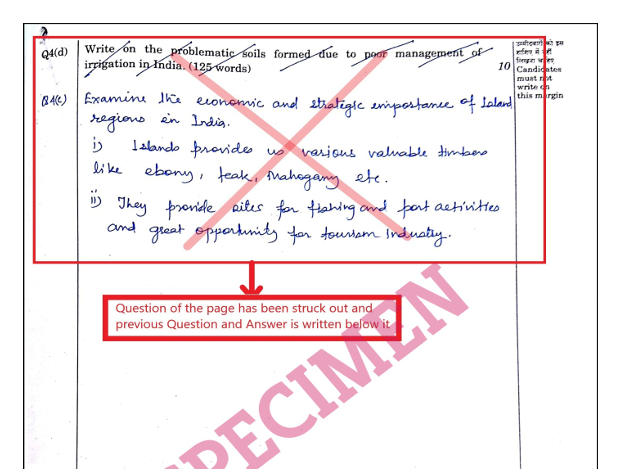 Q4(d) Write on the problematic soils formed due to poor management of
irrigation in India. (125 words) 10
उम्मीदवारों को इस
हाशिए में नहीं
लिखना चाहिए
Candidates
must not
write on
this margin
Q4(c) Examine the economic and strategic importance of Island
regions in India.
i) Islands provides us various valuable timbers
like ebony, teak, mahogany etc.
ii) They provide sites for fishing and port activities
and great opportunity for tourism Industry.
Question of the page has been struck out and
previous Question and Answer is written below it
SPECIMEN